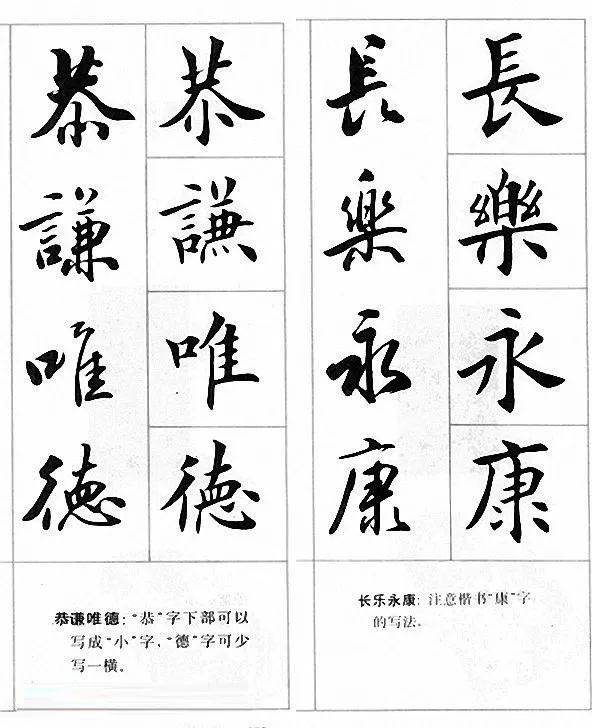 恭謙唯德
恭謙唯德
恭谦唯德：“恭”字下部可以
写成“小”字，“德”字可少
写一横。
長樂永康
長樂永康
长乐永康：注意楷书“康”字
的写法。